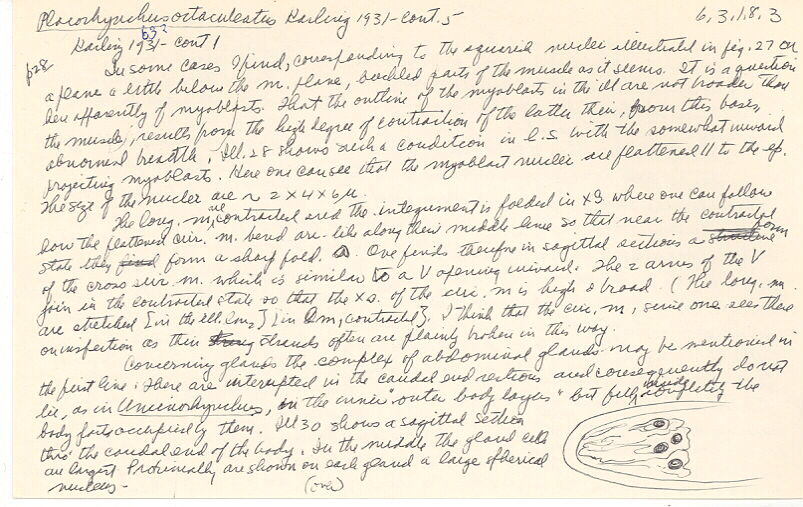 Placorhynchus octaculeatus Karling 1931-cont. 5
6.3.1.8.3
Karling 1931- cont 1
p28
63?
In some cases I find, corresponding to the squared nuclei illustrated in fig. 27 on
a plane a little below the m. plane, buckled parts of the muscle as it seems. It is a question
here apparently of myoblasts. That the outline of the myoblasts in the ill are not broader than
the muscle, results from the high degree of contraction of the latter their, from this basis,
abnormal breadth. Ill. 28 shows such a condition in l.s. with the somewhat inward
projecting myoblasts. Here one can see that the myoblast nuclei are flattened || to the ep.
The size of the nuclei are ~ 2 x 4 x 6 µ.
The long. m. are contracted and the integument is folded in xs where one can follow
how the flattened circ. m. bend are like along their middle line so that near the contracted
state they find form a sharp fold. One finds therefore in sagittal sections a structure form
of the cross circ. m. which is similar to a V opening inward. The 2 arms of the V
join in the contracted state so that the xs. of the circ. m is high & broad. (The long. m.
are stretched [in the ill. lm2] [in lm, contracted]. I think that the circ. m, since one sees there
on inspection as their strands often are plainly broken in this way.
Concerning glands the complex of abdominal glands may be mentioned in
the first line. These are interrupted in the caudal end sections and consequently do not
lie, as in Uncinorhynchus, in the inner outer body layers" but fully completely the
body parts occupied by them. Ill 30 shows a sagittal section
thru the caudal end of the body. In the middle the gland cells
are largest. Proximally are shown on each gland a large spherical
nucleus-
(over)